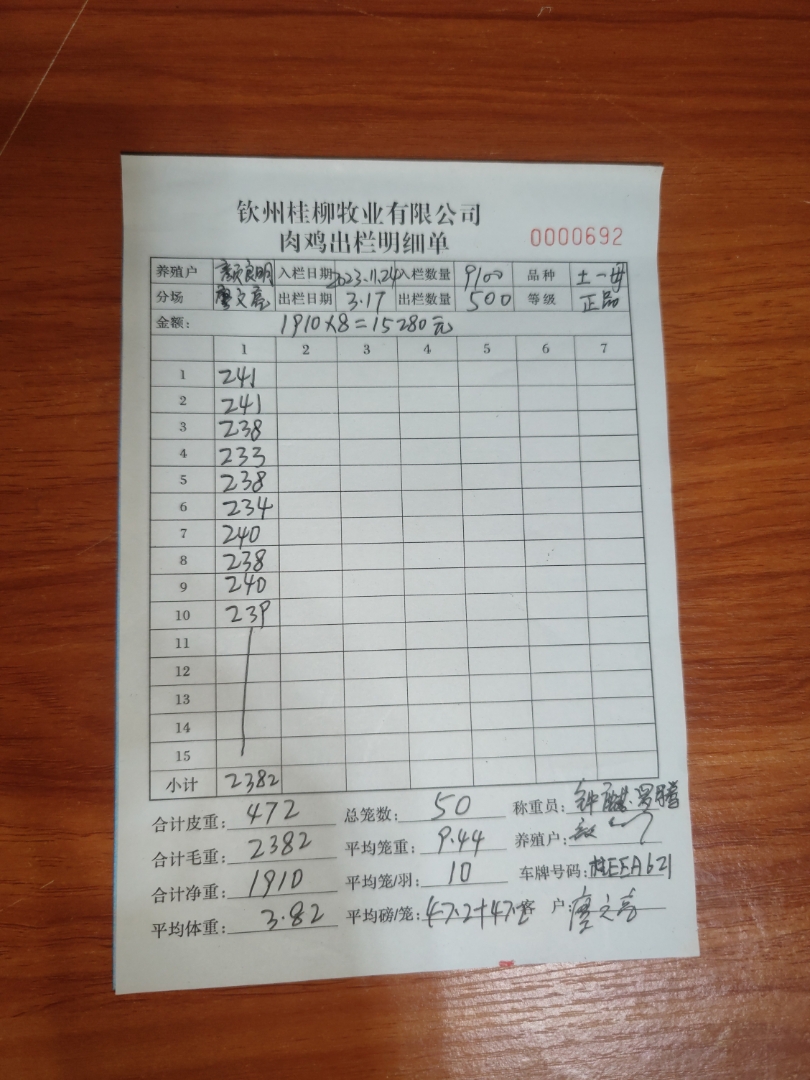 钦州桂柳牧业有限公司
肉鸡出栏明细单 0000692
养殖户 颜良明 入栏日期 2023.11.24 入栏数量 9100 品种 土一母
分场 廖文亮 出栏日期 3.17 出栏数量 500 等级 正品
金额: 1910×8=15280元
1 2 3 4 5 6 7
1 241
2 241
3 238
4 233
5 238
6 234
7 240
8 238
9 240
10 239
11
12
13
14
15
小计 2382
合计皮重: 472 总笼数: 50 称重员: 钟
合计毛重: 2382 平均笼重: 9.44 养殖户:
合计净重: 1910 平均笼/羽: 10 车牌号码: 桂EEA621
平均体重: 3.82 平均磅/笼: 47.2+47.2 客 户: 廖文亮